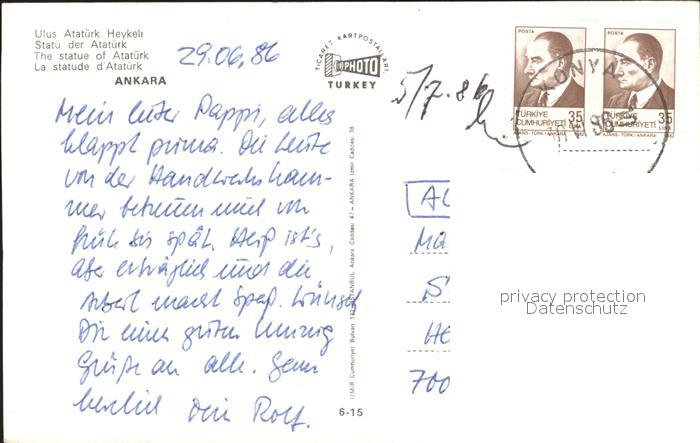 Ulus Atatürk Heykeli
Statü der Atatürk
The statue of Atatürk
La statude d'Atatürk
ANKARA
29.06.86
TİCARET KARTPOSTALLARI
PHOTO
TURKEY
5/7.86
POSTA
POSTA
TÜRKİYE
CUMHURİYETİ
35
LİRA
AJANS-TÜRK/ANKARA
TÜRKİYE
CUMHURİYETİ
35
LİRA
AJANS-TÜRK/ANKARA
KONYA
Mein lieber Pappi, alles
klappt prima. Die Leute
von der Handwerkskam-
mer betreuen mich von
früh bis spät. Heiß ist's,
aber erträglich und die
Arbeit macht Spaß. Wünsche
Dir einen guten Umzug
Grüße an alle. Ganz
herzlich Dein Rolf.
İZMİR Cumhuriyet Bulvarı İSTANBUL Ankara Caddesi 47 - ANKARA İzmir Caddesi 38
6-15
Ma
He
700
privacy protection
Datenschutz